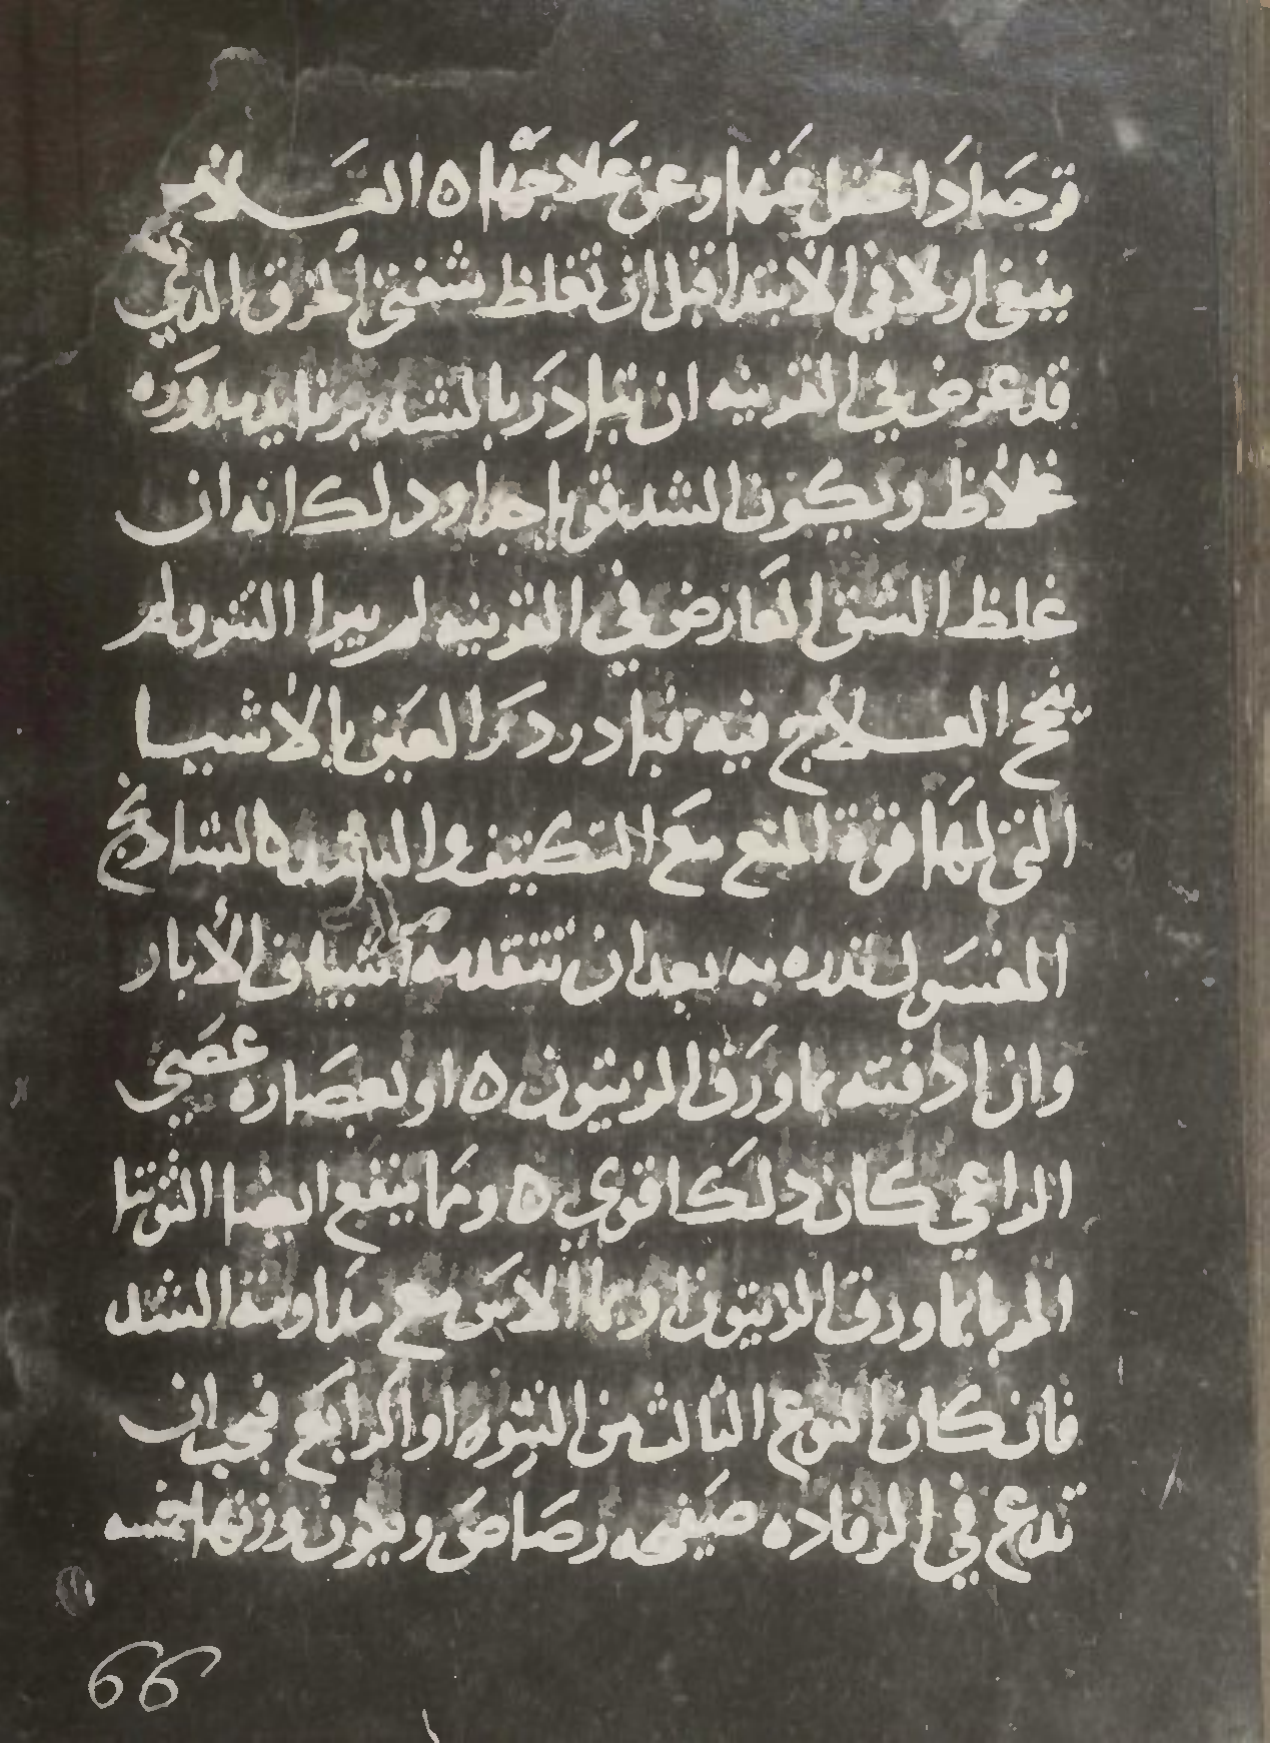 قرحه اذا غفل عنها وعن علاجها ٥ العـــلاج
ينبغي اولا في الابتدا قبل ان تغلظ شفتي الخرق الذي
قد عرض في القرنيه ان تبادر بالشد برفايد مدوره
غلاظ ويكون الشد قويا جدا وذلك انه ان
غلظ الشق العارض في القرنيه لم يبرا النتو ولم
ينجح العـــلاج فيه فبادر ودمر العين بالاشيـــا
التي لها قوة المنع مع التكثيف والشد ٥ الشادنج
المغسول تذره به بعد ان تتقدمه اشياف الأبار
وان ادفته بما ورق الزيتون ٥ او بعصاره عصي
الراعي كان ذلك اقوي ٥ ومما ينفع ايضا التوتيا
المربا بما ورق الزيتون او بما الاس مع مداومة الشد
فان كان النوع الثالث من النتوه او الرابع فيجب ان
تدع في الرفاده صفيحه رصاص ويكون وزنها خمسه
66